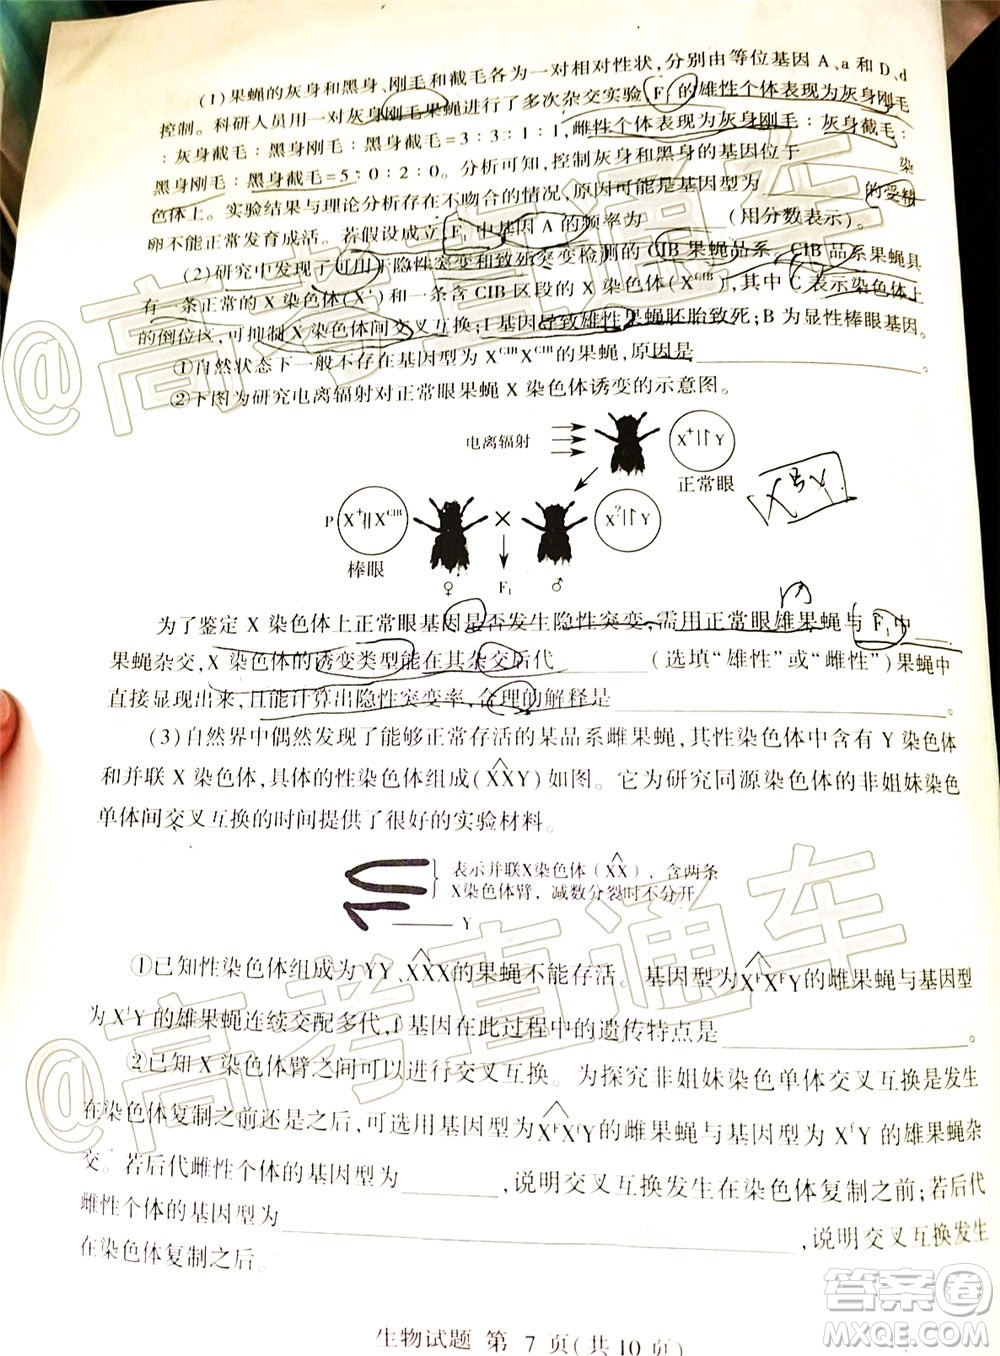 (1)果蝇的灰身和黑身、刚毛和截毛各为一对相对性状，分别由等位基因 A、a 和 D、d
控制。科研人员用一对灰身刚毛果蝇进行了多次杂交实验，F₁ 的雄性个体表现为灰身刚毛
：灰身截毛：黑身刚毛：黑身截毛=3：3：1：1，雌性个体表现为灰身刚毛：灰身截毛：
黑身刚毛：黑身截毛=5：0：2：0。分析可知，控制灰身和黑身的基因位于______染
色体上。实验结果与理论分析存在不吻合的情况，原因可能是基因型为______的受精
卵不能正常发育成活。若假设成立，F₁ 中基因 A 的频率为______(用分数表示)。
(2)研究中发现了可用于隐性突变和致死突变检测的 CIB 果蝇品系，CIB 品系果蝇具
有一条正常的 X 染色体(X⁺)和一条含 CIB 区段的 X 染色体(Xᶜᴵᴮ)，其中 C 表示染色体上
的倒位区，可抑制 X 染色体间交叉互换；I 基因导致雄性果蝇胚胎致死；B 为显性棒眼基因。
①自然状态下一般不存在基因型为 XᶜᴵᴮXᶜᴵᴮ 的果蝇，原因是______。
②下图为研究电离辐射对正常眼果蝇 X 染色体诱变的示意图。
电离辐射
X⁺ Y
正常眼
P X⁺ Xᶜᴵᴮ × X? Y
棒眼 ♀ F₁ ♂
为了鉴定 X 染色体上正常眼基因是否发生隐性突变，需用正常眼雄果蝇与 F₁ 中______
果蝇杂交，X 染色体的诱变类型能在其杂交后代______(选填“雄性”或“雌性”)果蝇中
直接显现出来，且能计算出隐性突变率，合理的解释是______。
(3)自然界中偶然发现了能够正常存活的某品系雌果蝇，其性染色体中含有 Y 染色体
和并联 X 染色体，具体的性染色体组成(X^XY)如图。它为研究同源染色体的非姐妹染色
单体间交叉互换的时间提供了很好的实验材料。
表示并联X染色体(X^X)，含两条
X染色体臂，减数分裂时不分开
Y
①已知性染色体组成为 YY、X^XX 的果蝇不能存活。基因型为 XᶠX^FY 的雌果蝇与基因型
为 XᶠY 的雄果蝇连续交配多代，f 基因在此过程中的遗传特点是______。
②已知 X 染色体臂之间可以进行交叉互换。为探究非姐妹染色单体交叉互换是发生
在染色体复制之前还是之后，可选用基因型为 X^FXᶠY 的雌果蝇与基因型为 XᶠY 的雄果蝇杂
交。若后代雌性个体的基因型为______，说明交叉互换发生在染色体复制之前；若后代
雌性个体的基因型为______，说明交叉互换发生
在染色体复制之后。
生物试题 第 7 页(共 10 页)
@高考直通车
@高考直通车
答案圈
MXQE.COM